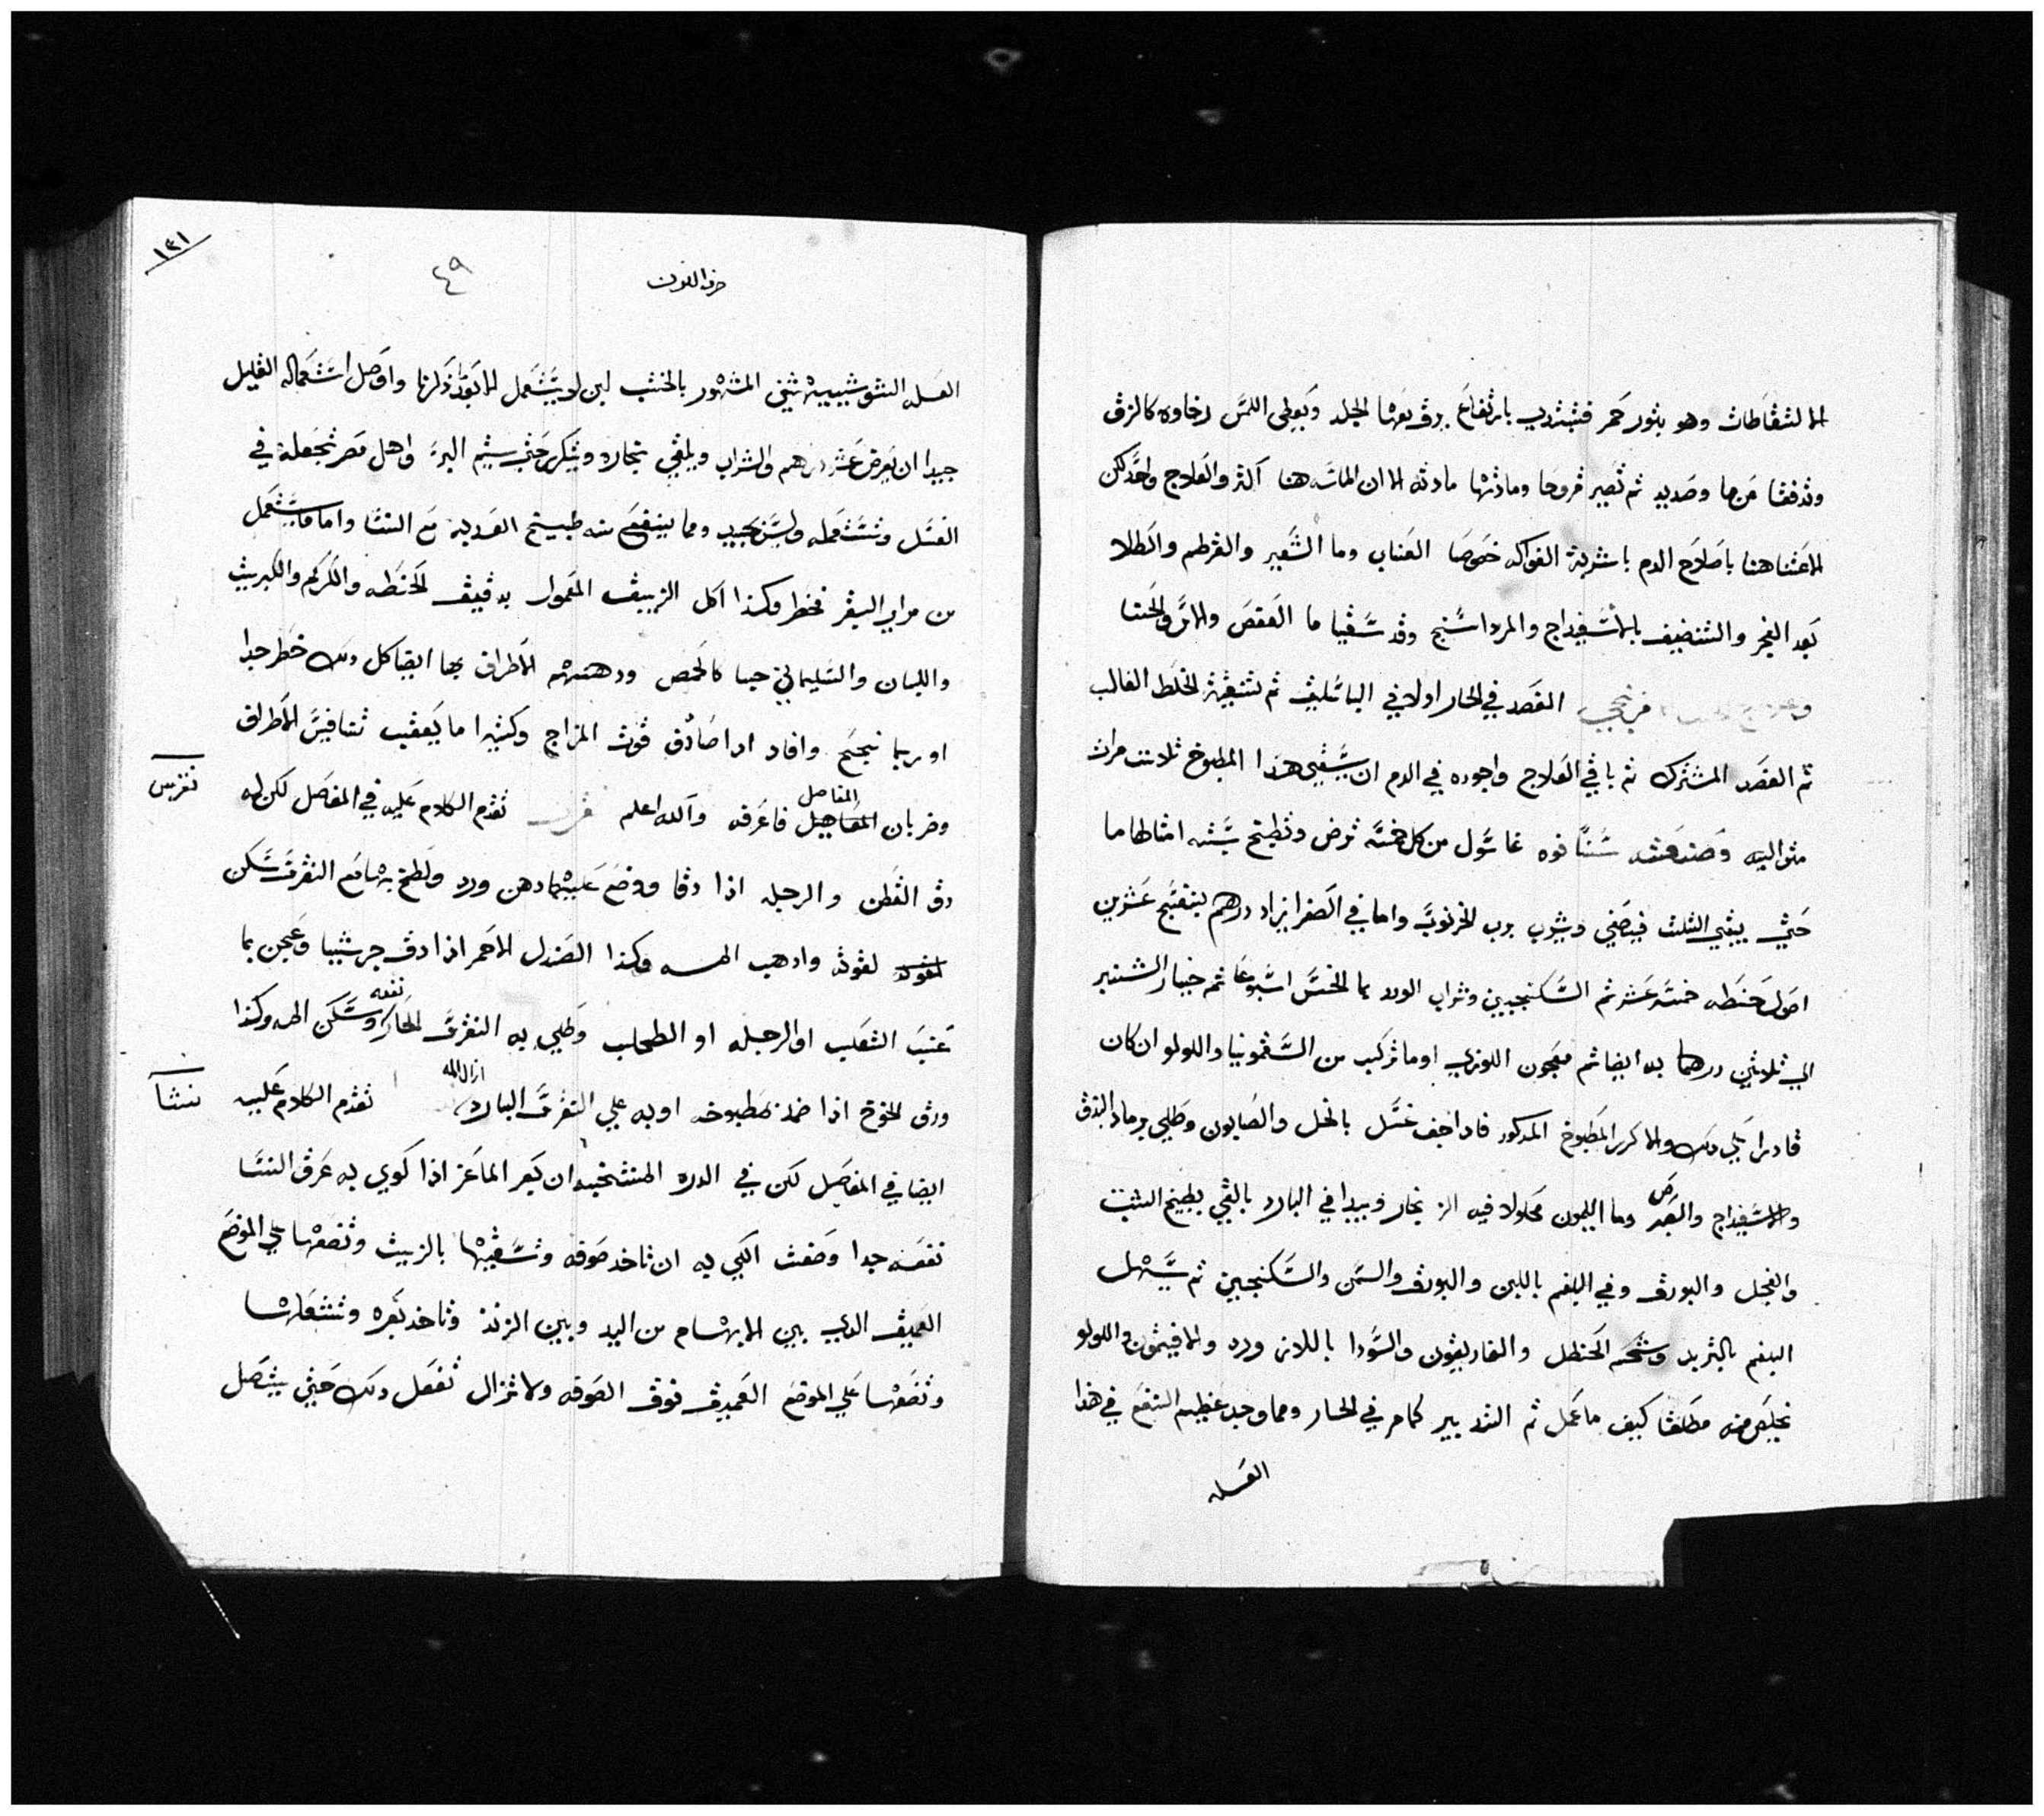 النفاطات وهو بثور حمر فتبتدي بارتفاع يرق معها الجلد ويعطي اللمس رخاوه كالزق
وتدفقا مرها وصديد ثم تصير قروحا ومادتها مادته الا ان المائيه هنا اكثر والعلاج واحد لكن
الاعتنا هنا باصلاح الدم باشربة الفواكه خصوصا العناب وما الشعير والقرطم والطلا
بعد الفجر والتنضيف بالاسفيداج والمرداسنج وقد سقيا ما العفص والاس والحنا
الفصد في الحار اولا في الباسليق ثم تنقية الخلط الغالب
ثم الفصد المشترك ثم باقي العلاج واجوده في الدم ان يسقى هذا المطبوخ ثلاث مرات
من كل خمسة ترض وتطبخ بسته امثالها ما
حتى يبقى الثلث فيصفي ويشرب برب الخرنوب واما في الصفرا يزاد درهم بنفسج عشرين
اصول حنطه خمسة عشر ثم السكنجبين وشراب الورد بما الخس اسبوعا ثم خيار الشنبر
الى ثلاثين درهما به ايضا ثم معجون اللوزي او ما تركب من السقمونيا واللولو ان كان
قادرا على ذلك والا كرر المطبوخ المدكور فاداخف غسل بالخل والصابون وطلي برماد البندق
والاسفيداج والصبر وما الليمون محلولا فيه الزنجار ويبدا في البارد بالقي بطبيخ الشبت
والفجل والبورق وفي البلغم باللبن والبورق والسمن والسكنجبين ثم يسهل
البلغم بالتربد وشحم الحنظل والغاريقون والسودا باللازورد والافيثمون واللولو
يخلص منه مطلقا كيف ما عمل ثم التدبير كما مر في الحار ومما وجد عظيم النفع في هذا
العله
حرف النون
٤٩
١٤١
العله المشهور بالخشب لين لا يستعمل الا بعد ذكرنا وافضل استعماله القليل
جيدا ان يرض عشرة دراهم والشراب ويلقي بخاره ويكرر حتى يتم البرء واهل مصر تجعله في
العسل وتستعمله وليس بجيد ومما ينفع منه طبيخ الفديه مع السنا واما ما يستعمل
من مراير البقر فخطر وكذا اكل الزيبق المعمول بدقيق الحنطه والكركم والكبريت
واللبان والسليماني حبا كالحمص ودهنهم الاطراق بها ايضا كل ذلك خطر جدا
او ربما نجح وافاد اذا صادق قوت المزاج وكثيرا ما يعقب تنافيس الاطراق
وضربان المفاصل المفاصل فاعرفه والله اعلم تقدم الكلام عليه في المفصل لكن له
نقرس
دق القطن والرجله اذا دقا ووضع عليهما دهن ورد ولطخ بهما مع النقرس سكن
لقوته واذهب المه وكذا الصندل الاحمر اذا دق جريشا وعجن بما
عنب الثعلب او الرجله او الطحلب وطلي به النقرس الحار نفعه وسكن المه وكذا
ورق الخوخ اذا ضمد مطبوخه او به علي النقرس البارد ازال المه تقدم الكلام عليه
نسا
ايضا في المفصل لكن في الدره المنتخبه ان بعر الماعز اذا كوي به عرق النسا
نفعه جدا وصفت الكي به ان تاخد صوفه وتسقيها بالزيت وتضعها علي الموضع
العميق الدي بين الابهام من اليد وبين الزند وتاخد بعره وتشعلها
وتضعها علي الموضع العميق فوق الصوفه ولا تزال تفعل دلك حتى يتصل